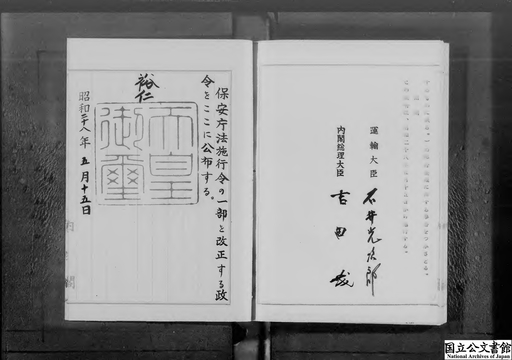 運輸大臣 石井光次郎
内閣総理大臣 吉田茂
保安庁法施行令の一部を改正する政
令をここに公布する。
裕仁
天皇御璽
昭和二十八年五月十五日
内閣
国立公文書館
National Archives of Japan